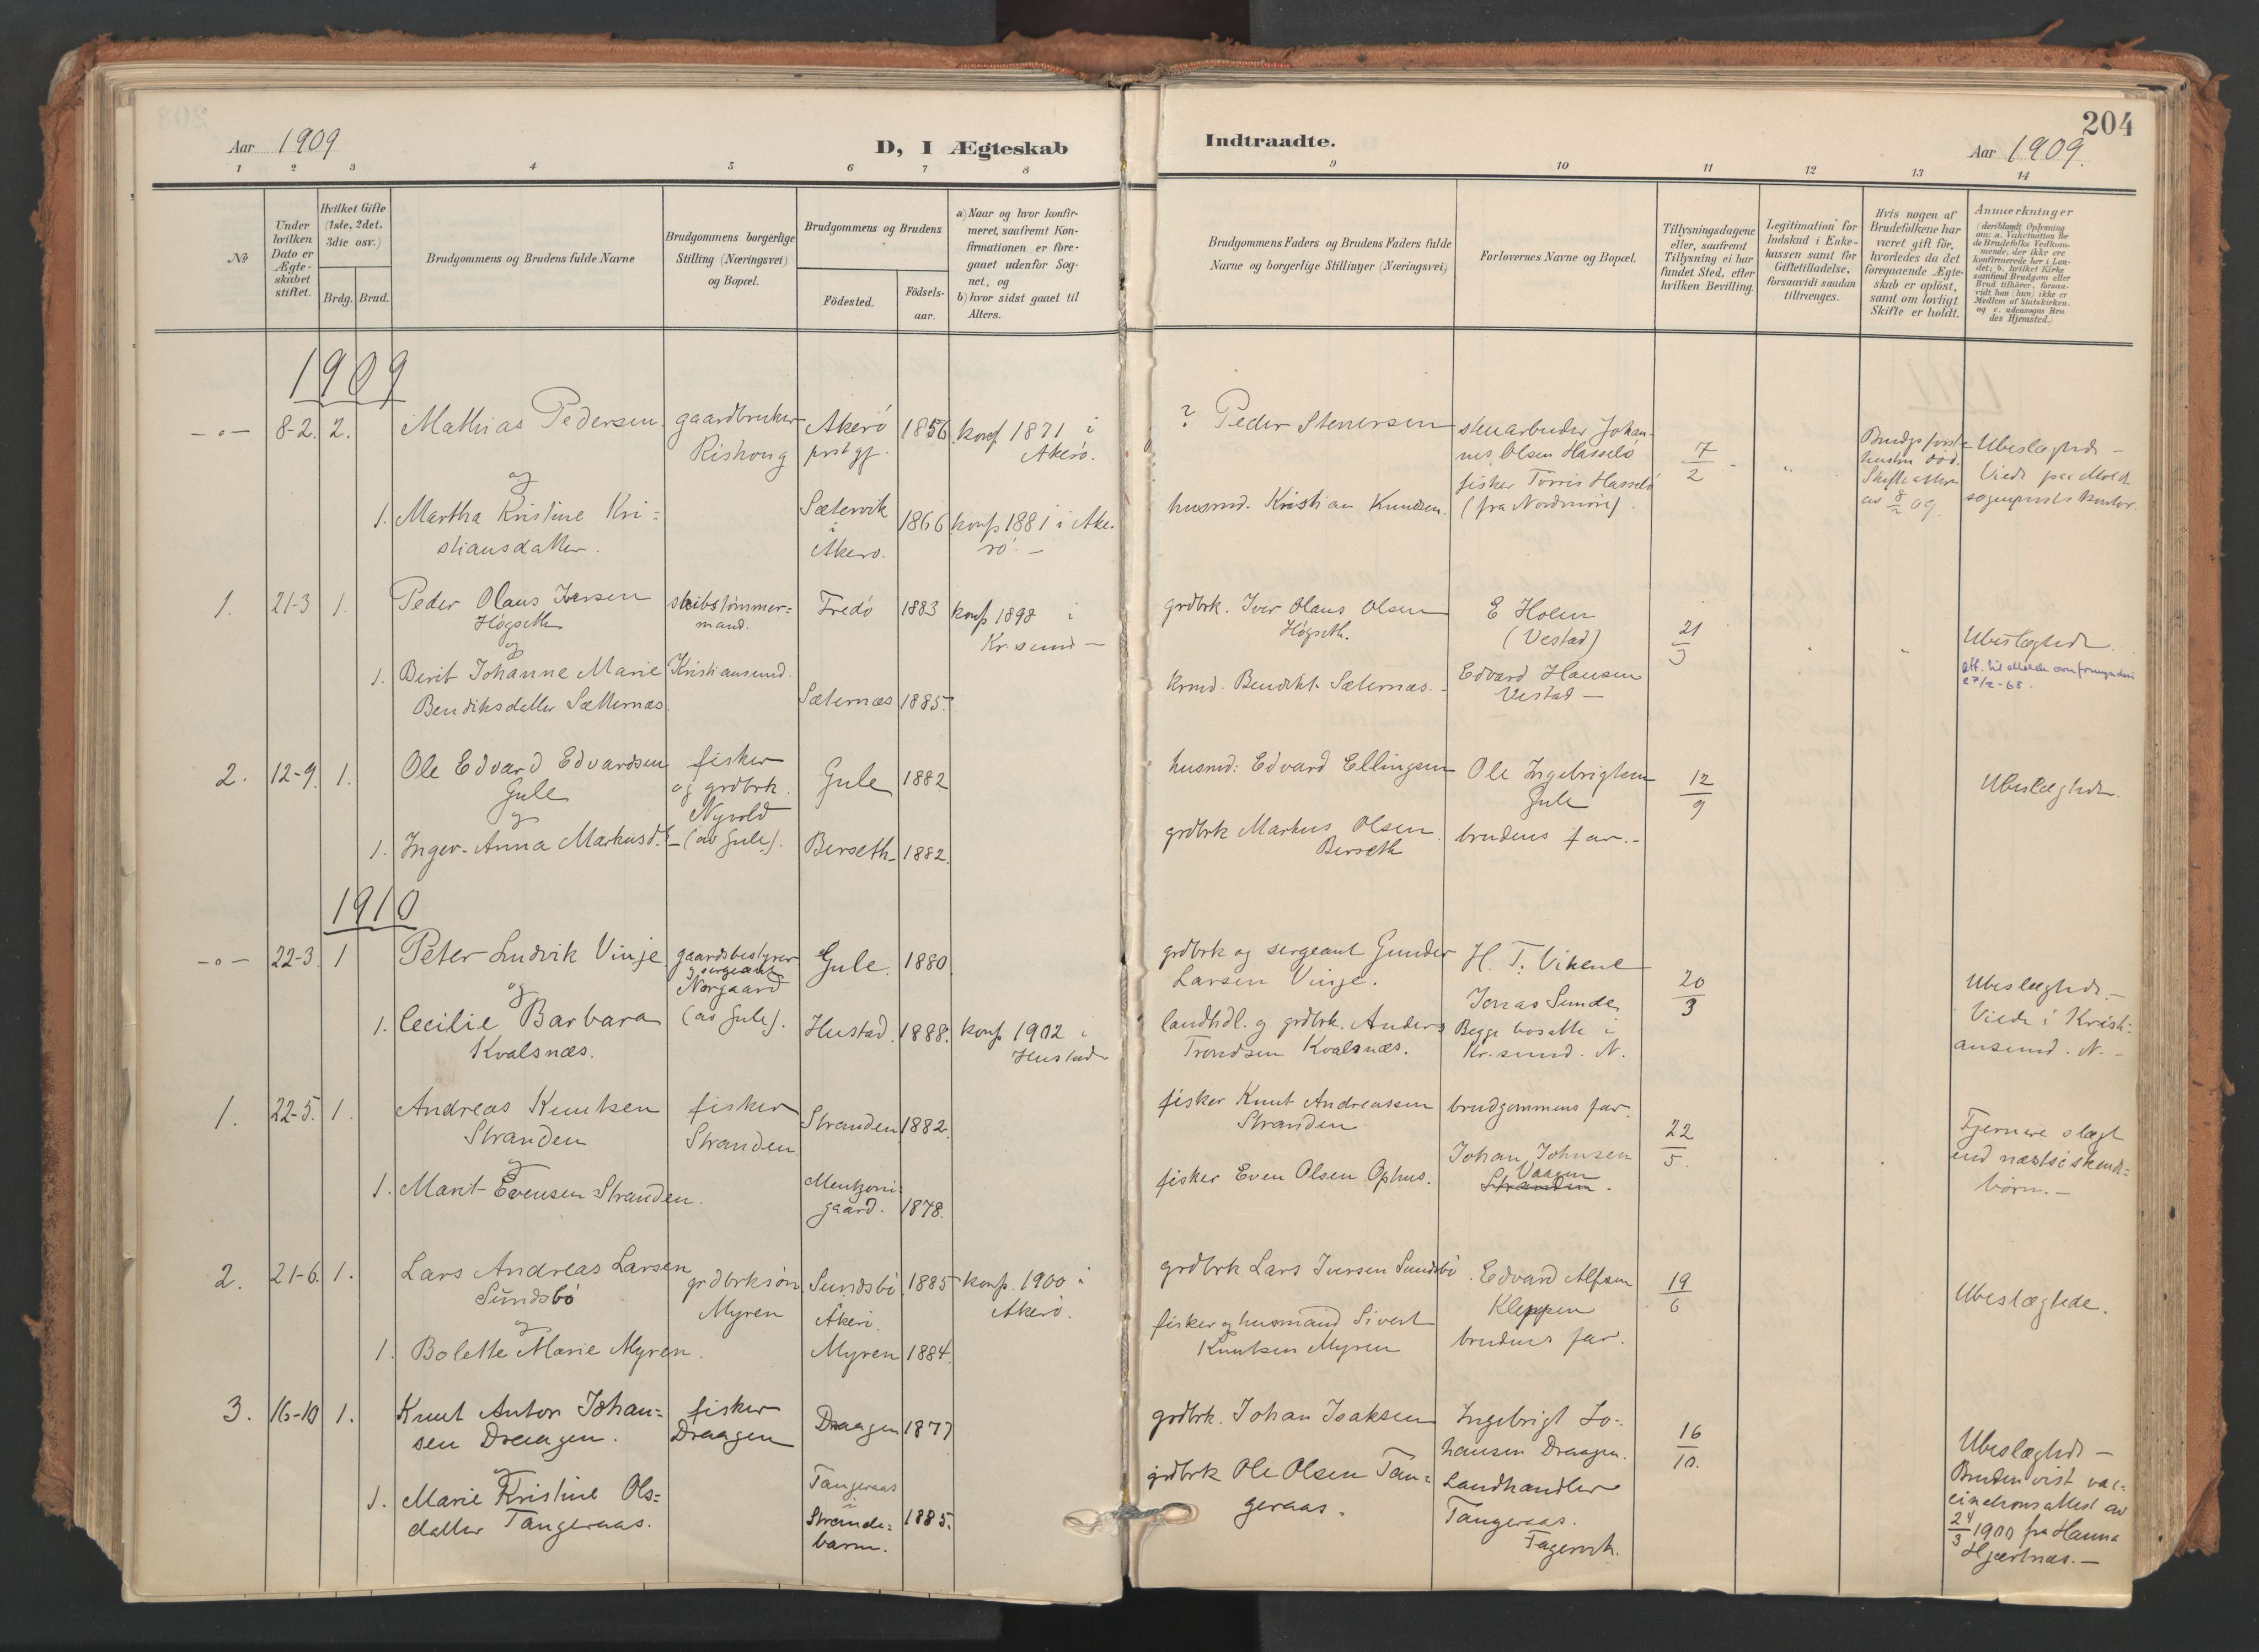 204
Aar 1909
D, I Ægteskab
Indtraadte.
Aar 1909.
1 2 3 4 5 6 7 8 9 10 11 12 13 14
No
Under hvilken Dato er Ægteskabet stiftet.
Hvilket Gifte (1ste, 2det, 3die osv.)
Brdg. Brud.
Brudgommens og Brudens fulde Navne
Brudgommens borgerlige Stilling (Næringsvei) og Bopæl.
Brudgommens og Brudens
Födested.
Födsels-aar.
a) Naar og hvor konfirmeret, saafremt Konfirmationen er foregaaet udenfor Sognet, og
b) hvor sidst gaaet til Alters.
Brudgommens Faders og Brudens Faders fulde Navne og borgerlige Stillinger (Næringsvei)
Forlovernes Navne og Bopæl.
Tillysningsdagene eller, saafremt Tillysning ei har fundet Sted, efter hvilken Bevilling.
Legitimation for Indskud i Enkekassen samt for Giftetilladelse, forsaavidt saadan tiltrænges.
Hvis nogen af Brudefolkene har været gift för, hvorledes da det foregaaende Ægteskab er oplöst, samt om lovligt Skifte er holdt.
Anmærkninger (deriblandt Oplysning om: a. Vakcination for de Brudefolks Vedkommende, der ikke ere konfirmerede her i Landet; b. hvilket Kirkesamfund Brudgom eller Brud tilhörer, forsaavidt han (hun) ikke er Medlem af Statskirken. og c. udensogns Brudes Hjemsted.)
1909
-o- 8-2. 2. Mathias Pedersen gaardbruker Akerö 1856 konf 1871 i
Rishoug prstgj. Akerö.
og
1. Martha Kristine Kri= Sætervik 1866 konf 1881 i Ake-
stiansdatter. i Akerö. rö. -
? Peder Stenersen stenarbeider Johan-
nes Olsen Hasselö
fisker Torris Hasselö
husmd. Kristian Knudsen. (fra Nordmöre).
7/2 -
Brudgs förste
hustru död.
Skifteattest
av 8/2 09.
Ubeslægtede -
Viede paa Molde
sogneprests kontor.
1. 21-3 1. Peder Olaus Iversen skibstömmer= Fredö 1883 konf 1898 i
Högseth mand. Kr.sund -
og
1. Berit Johanne Marie Kristiansund.
Bendiksdatter Sætternæs. Sæternæs 1885.
grdbrk. Iver Olaus Olsen E Holen
Högseth. (Vestad)
krmd. Bendikt Sæternæs. - Edvard Hansen
Vestad -
21/3
Ubeslægtede.
27/2-68.
2. 12-9. 1. Ole Edvard Edvardsen fisker Gule 1882
Gule og grdbrk.
og Nyvold
1. Inger-Anna Markusdt - (av Gule). Berseth 1882.
husmd: Edvard Ellingsen Ole Ingebrigtsen
Gule
grdbrk Markus Olsen brudens far. -
Berseth
12/9
Ubeslægtede.
1910
-o- 22-3 1 Peter Ludvik Vinje gaardsbestyrer Gule. 1880
og sergeant
og Norgaard
1. Cecilie Barbara (av Gule). Hustad. 1888. konf 1902 i
Kvalsnæs. Hustad
grdbrk og sergeant Gunder H. T. Vikene
Larsen Vinje. Jonas Sunde
landhdl. og grdbrk. Anders Begge bosatte i
Trondsen Kvalsnæs. Kr.sund. N.
20/3
Ubeslægtede. -
Viede i Kristi-
ansund. N. -
1. 22-5. 1. Andreas Knutsen fisker Stranden 1882.
Stranden Stranden
og
1. Marit Evensen Stranden. Mentzoni-
gaard. 1878.
fisker Knut Andreassen brudgommens far.
Stranden
Johan Johnsen
fisker Even Olsen Ophus. Vaagen
Stranden.
22/5.
Fjernere slægt
end næstsöskende=
börn. -
2. 21-6. 1. Lars Andreas Larsen grdbrksön Sundsbö 1885 konf. 1900 i
Sundsbö Myren Akerö. Akerö.
og
1. Bolette Marie Myren. Myren 1884.
grdbrk Lars Iversen Sundsbö. Edvard Alfsen
Kleppen
fisker og husmand Sivert
Knutsen Myren brudens far.
19/6
Ubeslægtede.
3. 16-10 1. Knut Anton Johan= fisker Draagen 1877
sen Draagen. Draagen
og
1. Marie Kristine Ols= Tangeraas
datter Tangeraas. i
Strande= 1885.
barm.
grdbrk. Johan Isaksen Ingebrigt Jo-
hansen Draagen.
grdbrk Ole Olsen Tan= Landhandler
geraas. Tangeraas.
Fagervik.
16/10.
Ubeslægtede -
Bruden vist vac-
cinationsattest av
24/3 1900 fra Hanna
Hjertnæs. -